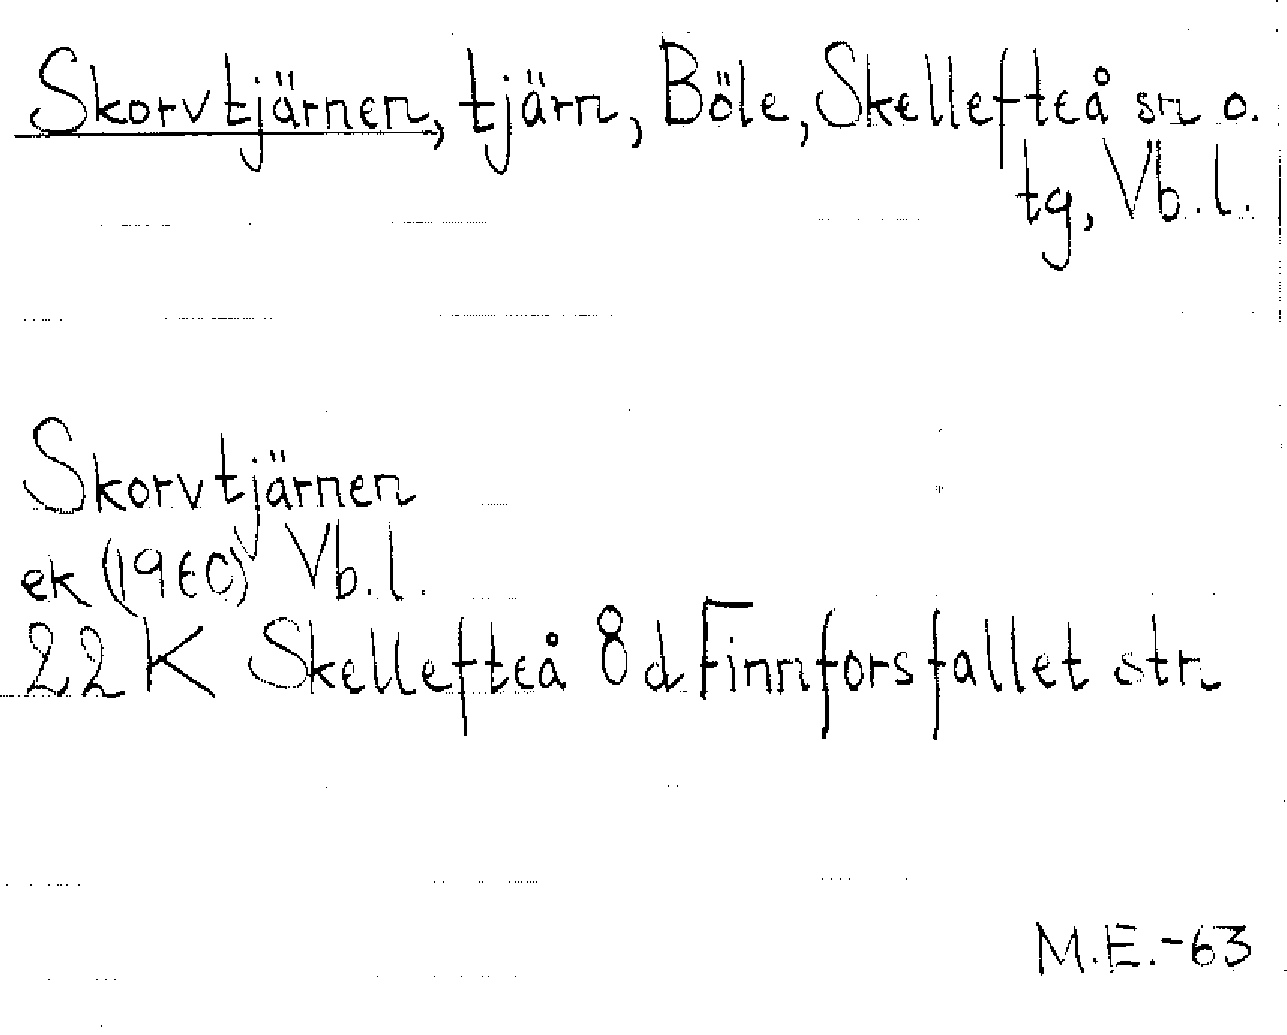 Skorvtjärnen, tjärn, Böle, Skellefteå sn o.
tg, Vb.l.
Skorvtjärnen
ek (1960) Vb.l.
22 K Skellefteå 8 d Finnforsfallet str
M.E.-63